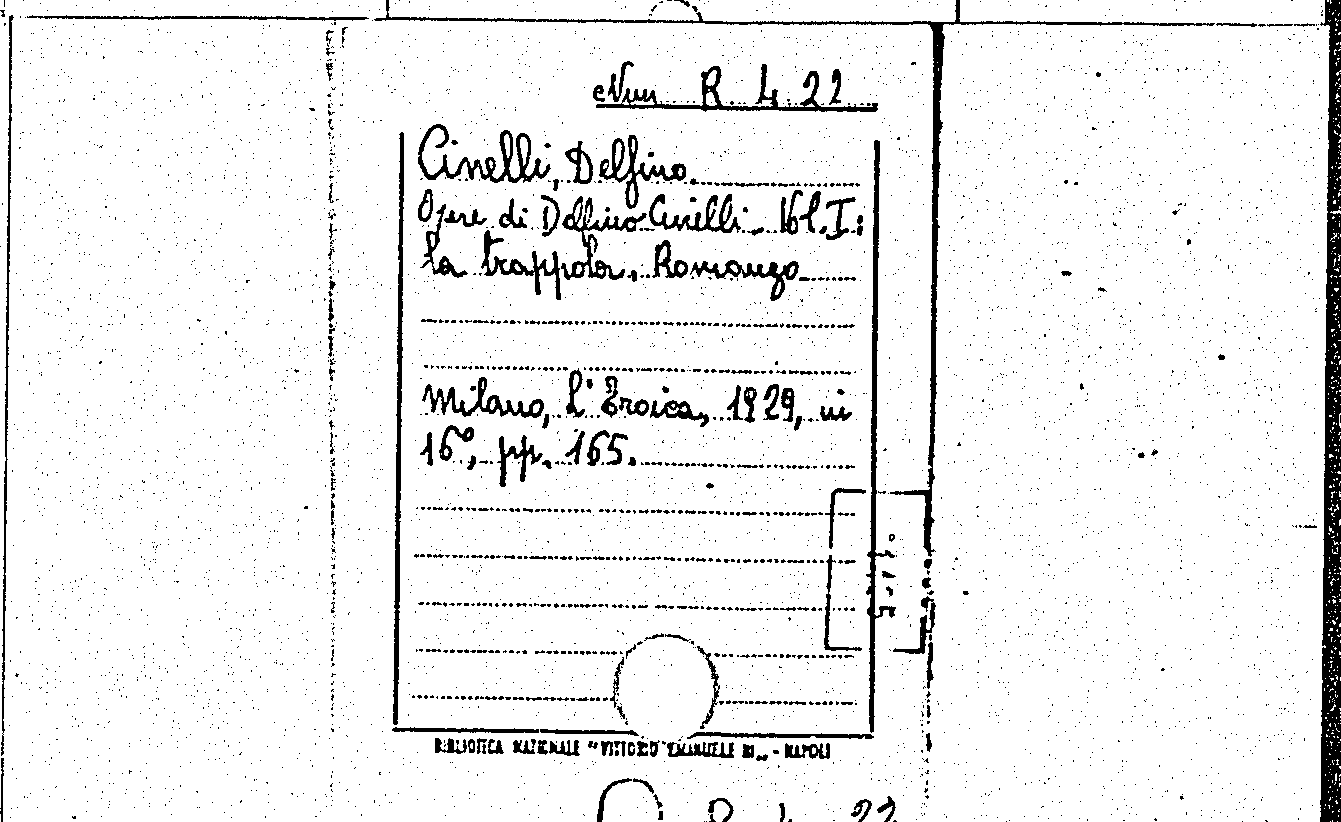 Nun R 4 22
Cinelli, Delfino.
Opere di Delfino Cinelli. Vol. I:
la trappola. Romanzo
Milano, L'Eroica, 1929, in
16°, pp. 165.
BIBLIOTECA NAZIONALE "VITTORIO EMANUELE III„ - NAPOLI